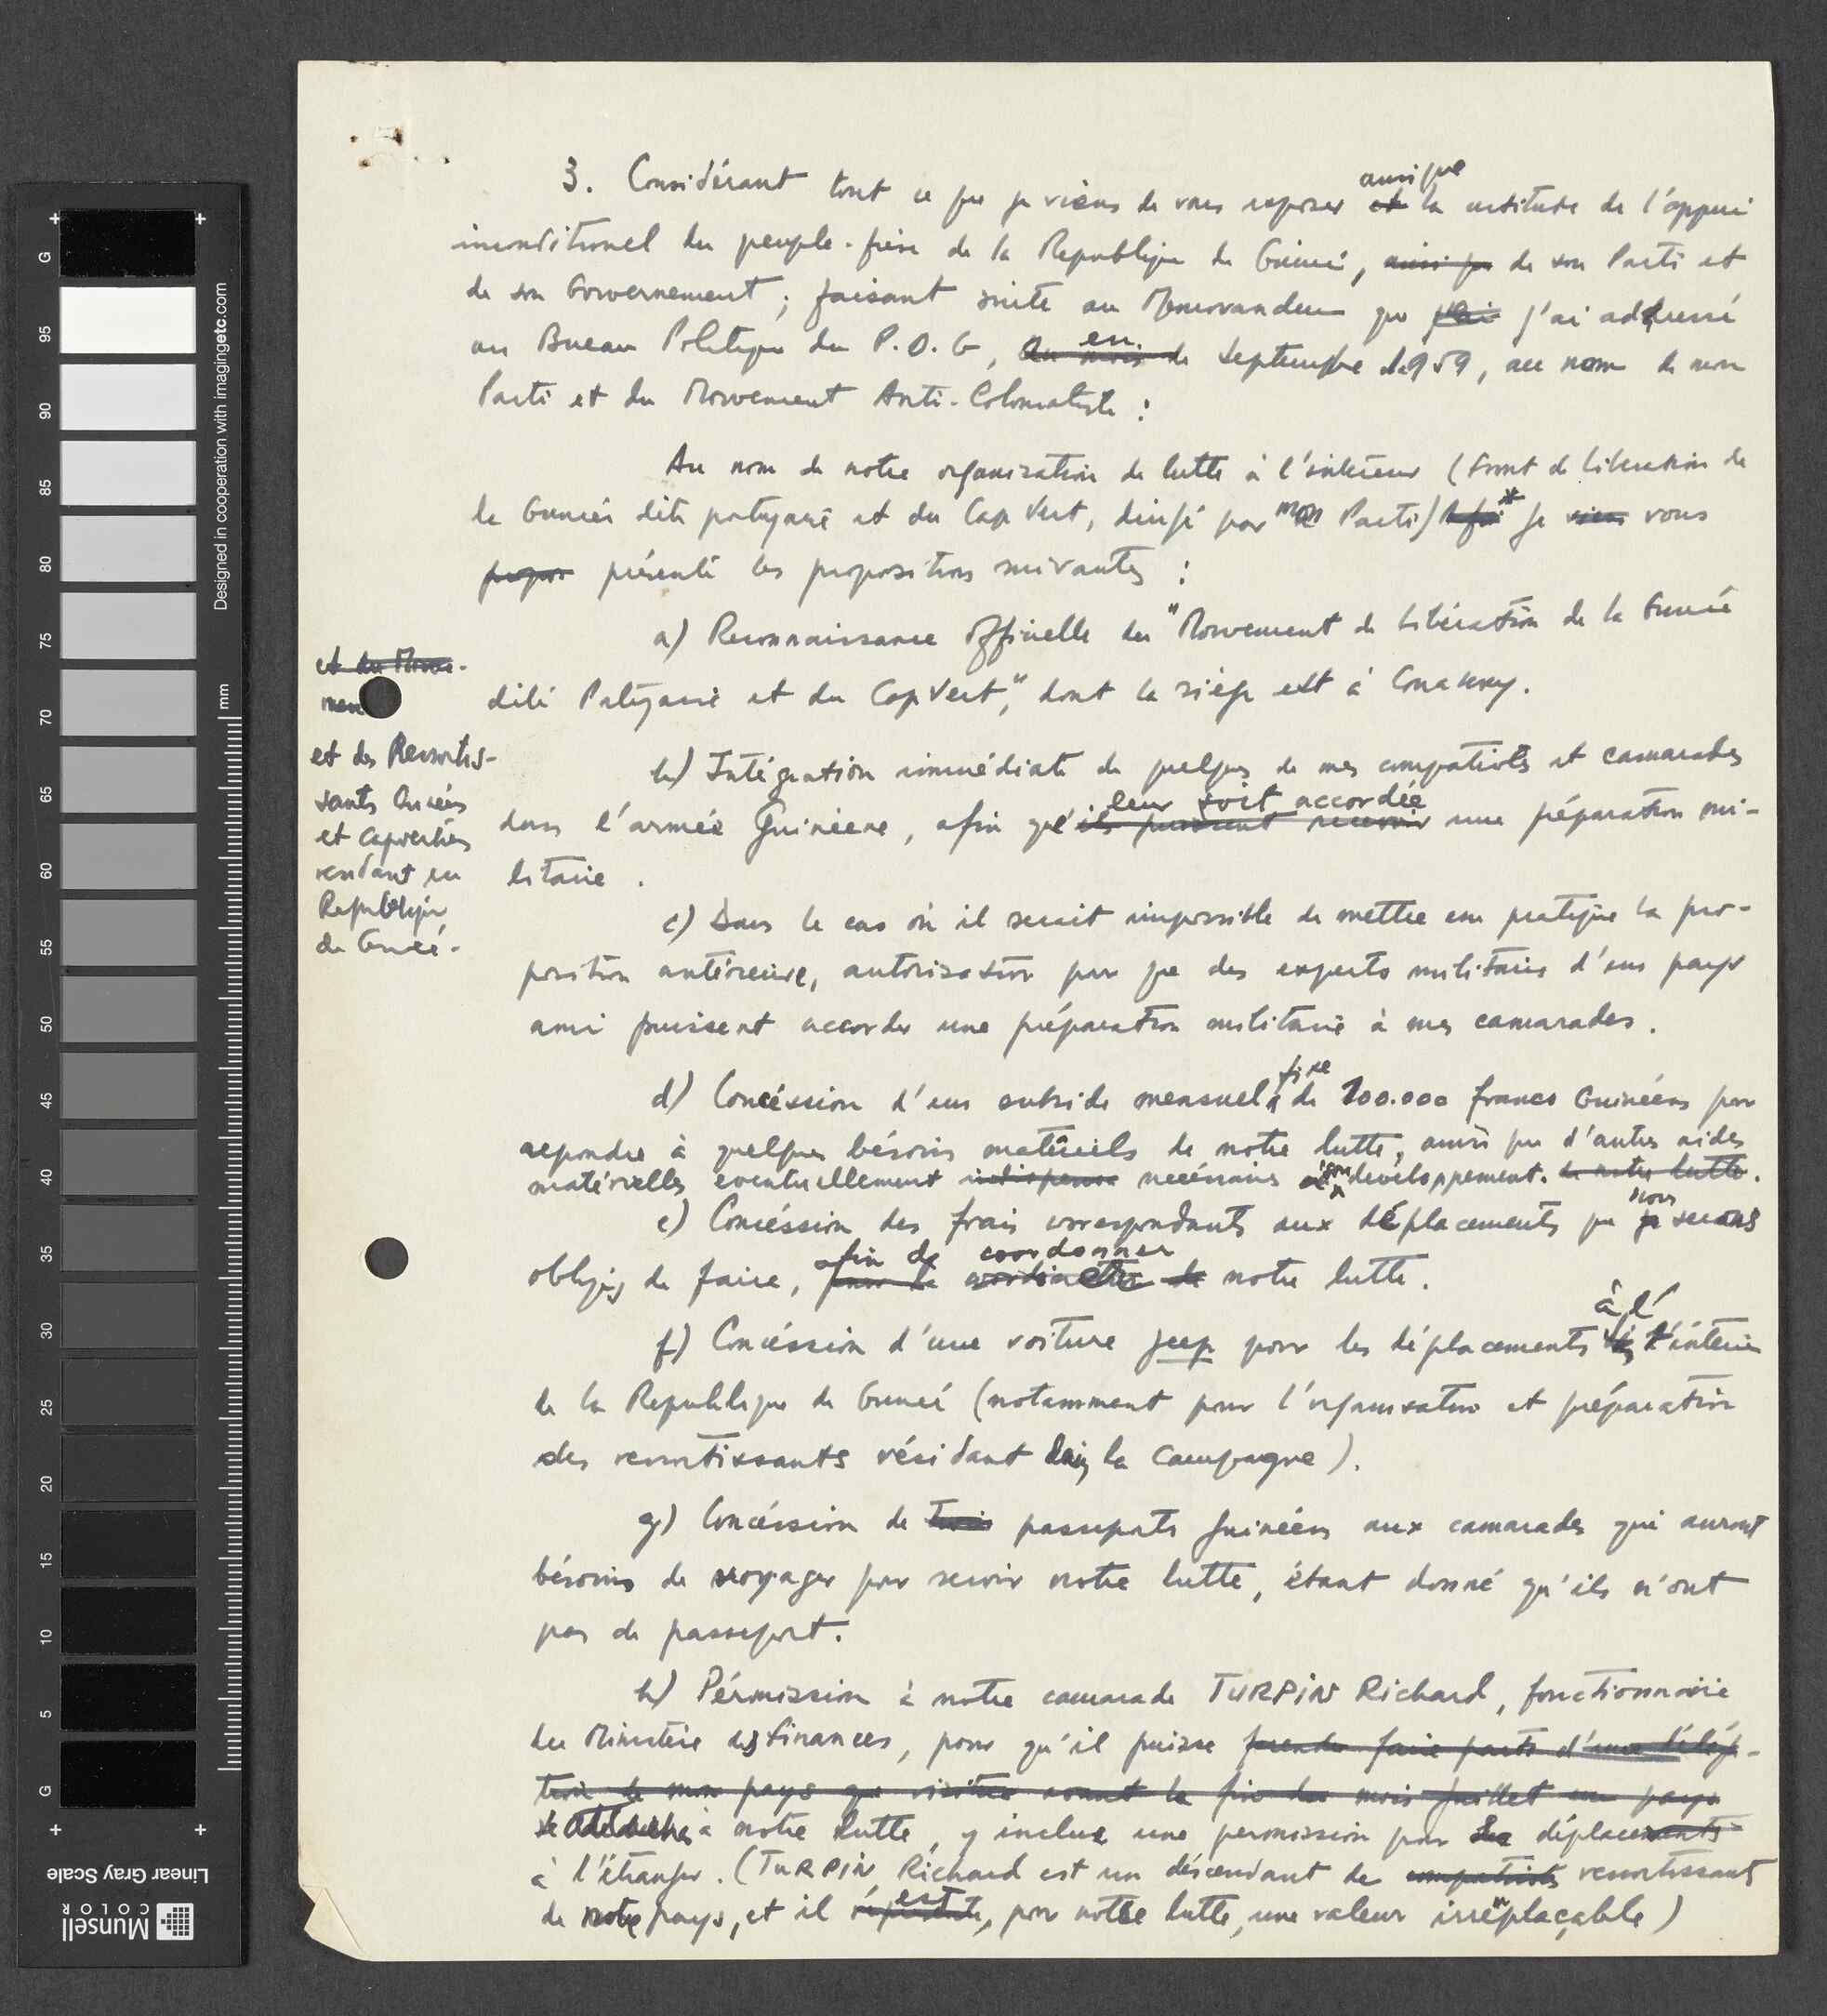 3. Considérant tout ce que je viens de vous exposer et ainsi que la certitude de l'appui
inconditionel du peuple-frère de la Republique de Guinée, ainsi que de son Parti et
de son Gouvernement; faisant suite au Memorandum que j'ai j'ai addressé
au Bureau Politique du P.D.G, au mois de en Septembre 1959, au nom de mon
Parti et du Mouvement Anti-Colonialiste:
Au nom de notre organisation de lutte à l'intérieur (Front de Libération de
la Guinée dite portugaise et du Cap Vert, dirigé par mon Parti) * je viens vous
propos présenté les propositions suivantes:
a) Reconnaissance Officielle du "Mouvement de Libération de la Guinée
dite Portugaise et du Cap Vert", dont le siège est à Conakry.
et du Mouve-
ment
et des Ressortis-
sants Guinéens
et Capverdiens
residant en
Republique
de Guinée.
b) Intégration immédiate de quelques de mes compatriotes et camarades
dans l'armée Guinéene, afin qu'ils puissent recevoir leur soit accordée une préparation mi-
litaire.
c) Dans le cas où il serait impossible de mettre en pratique la pro-
position antérieure, autorisation pour que des experts militaires d'un pays
ami puissent accorder une préparation militaire à mes camarades.
d) Concéssion d'un subside mensuel fixe de 100.000 francs Guinéens pour
repondre à quelques bésoins matériels de notre lutte, ainsi que d'autres aides
matérielles eventuellement indispensa necéssaires à son developpement. de notre lutte.
e) Concéssion des frais correspondants aux déplacements que je nous serons
obligés de faire, pour la coordination de afin de coordonner notre lutte.
f) Concéssion d'une voiture jeep pour les déplacements à l'intérieur
de la Republique de Guinée (notamment pour l'organisation et préparation
des ressortissants résidant dans la campagne).
g) Concéssion de trois passeports guinéens aux camarades qui auront
bésoins de voyager pour servir notre lutte, étant donné qu'ils n'ont
pas de passeport.
h) Pérmission à notre camarade TURPIN Richard, fonctionnaire
du Ministère des Finances, pour qu'il puisse prendre faire parti d'une délég-
tion de mon pays que visitera avant la fin du mois juillet un pays
se à notre lutte, y inclus une permission pour des déplacements
à l'étranger. (TURPIN, Richard est un déscendant de compatriotes ressortissants
de notre pays, et il répresente est, pour notre lutte, une valeur irrémplaçable)